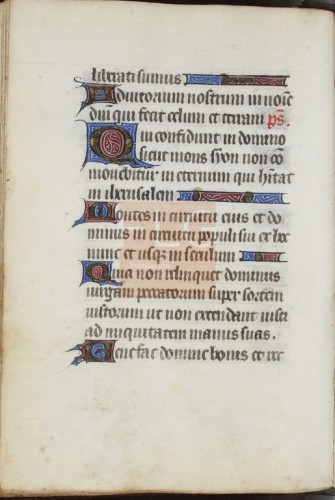 liberati sumus
Adiutorium nostrum in noīe
dn̄i qui fecit celum et terram ps̄.
Qui confidunt in domino
sicut mons syon non cō
mouebitur in eternum qui hītat
in iherusalem
Montes in circuitu eius et do
minus in circuitu populi sui ex hoc
nunc et usque in seculum
Quia non relinquet dominus
uirgam peccatorum super sortem
iustorum ut non extendant iusti
ad iniquitatem manus suas.
Benefac domine bonis et rec